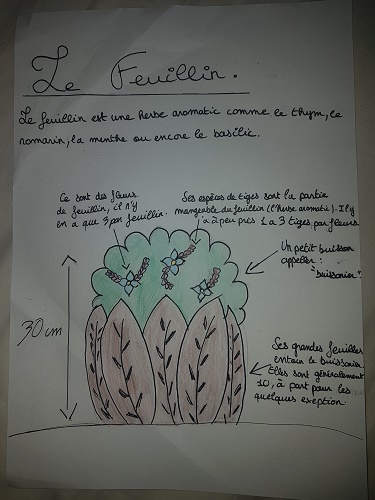 Le Feuillin.
Le feuillin est une herbe aromatic comme le thym, le
romarin, la menthe ou encore le basilic.
Ce sont des fleurs
de feuillin, il n'y
en a que 3 par feuillin.
Ses espèces de tiges sont la partie
mangeable du feuillin (l'herbe aromatic). Il y
a à peu près 1 à 3 tiges par fleurs.
Un petit buisson
appeler :
"buissonier".
30 cm
Ses grandes feuilles
entain le buissonier.
Elles sont généralement
10, à part pour les
quelques exeption.